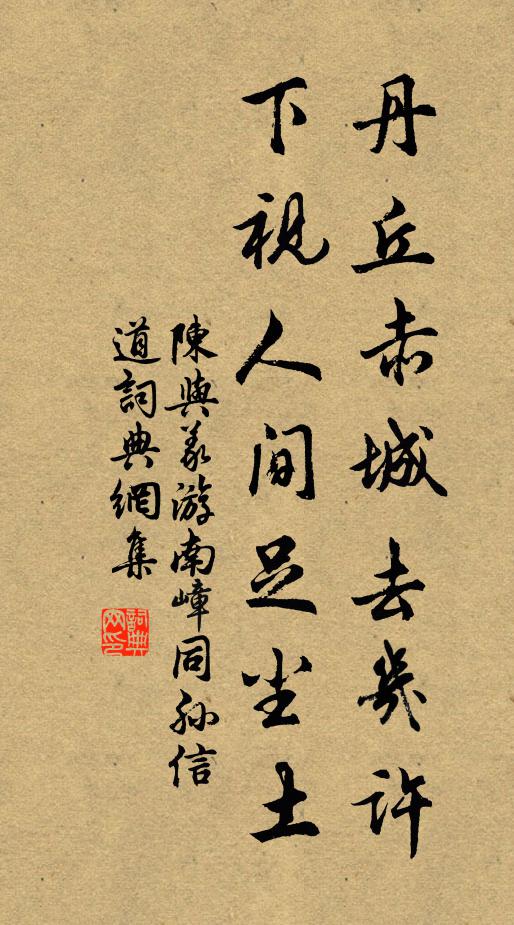 丹丘赤城去幾許
下視人間足尘土
陳與義游南嶂同孫信
道詞典網集
詞典网印